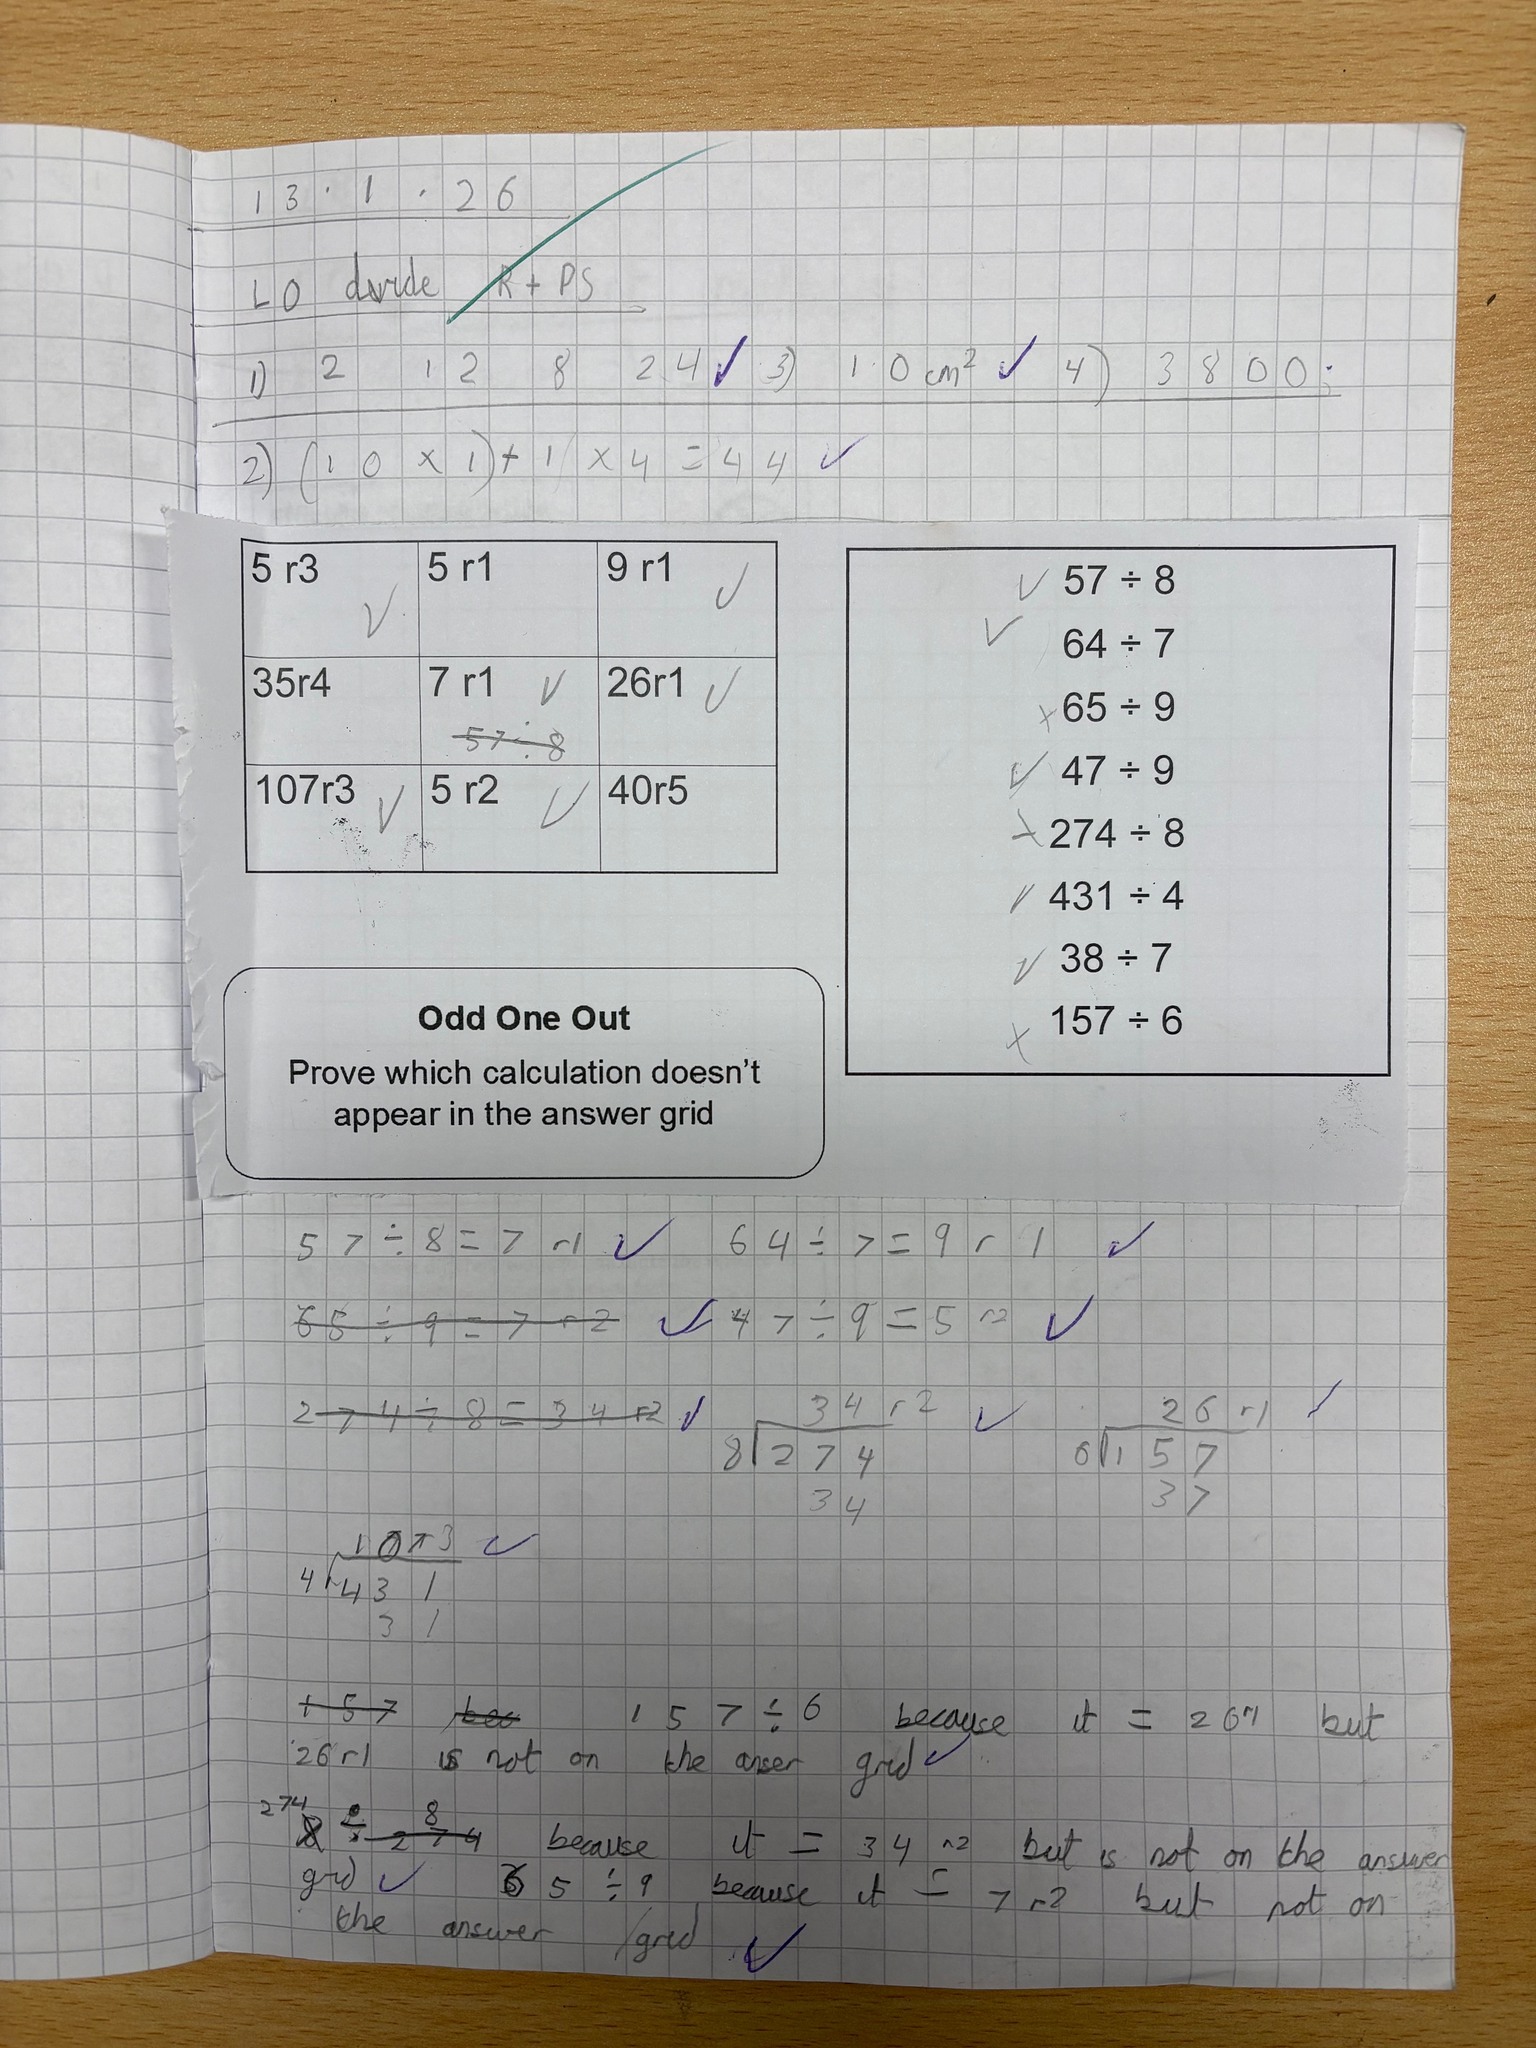 13.1.26
LO divide R + PS
1) 2 12 8 24 ✓ 3) 10 cm² ✓ 4) 3800
2) (10 x 1) + 1 x 4 = 44 ✓
5 r3 ✓ 5 r1 9 r1 ✓
35r4 7 r1 ✓ 26r1 ✓
57÷8
107r3 ✓ 5 r2 ✓ 40r5
✓ 57 ÷ 8
✓ 64 ÷ 7
x 65 ÷ 9
✓ 47 ÷ 9
x 274 ÷ 8
✓ 431 ÷ 4
✓ 38 ÷ 7
x 157 ÷ 6
Odd One Out
Prove which calculation doesn't
appear in the answer grid
57÷8=7 r1 ✓ 64÷7=9 r 1 ✓
65÷9=7 r2 ✓ 47÷9=5 r2 ✓
274÷8=34 r2 ✓ 34 r2 ✓ 26 r1 ✓
8 274 6 157
34 37
10 r3 ✓
4 431
31
157 bec 157÷6 because it = 26 but
26 r1 is not on the anser grid ✓
274 ÷ 8 274 because it = 34 r2 but is not on the answer
grid ✓ 65÷9 because it = 7 r2 but not on
the answer grid ✓